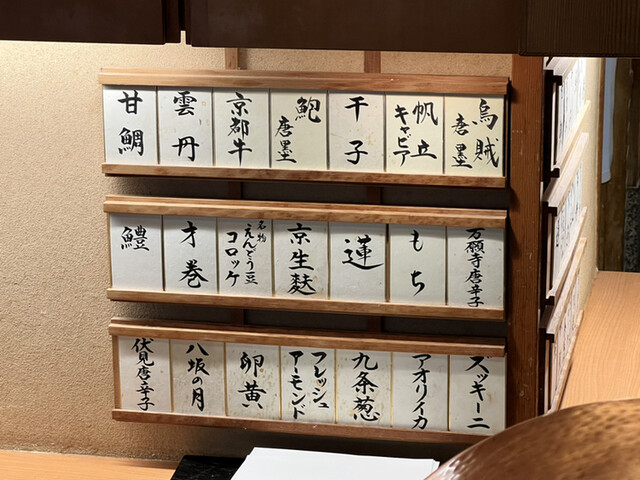 烏賊
唐墨
帆立
キャビア
干子
鮑
唐墨
京都牛
雲丹
甘鯛
万願寺唐辛子
もち
蓮
京生麩
名物
えんどう豆
コロッケ
才巻
鱧
ズッキーニ
アオリイカ
九条葱
フレッシュ
アーモンド
卵黄
八坂の月
伏見唐辛子